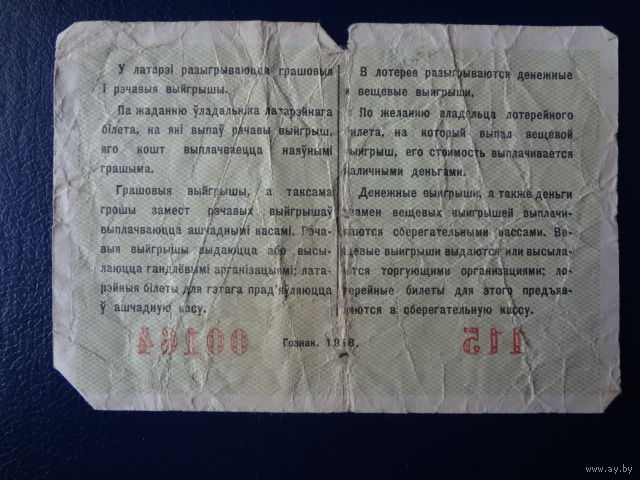 У латарэі разыгрываюцца грашовыя
і рэчавыя выйгрышы.
Па жаданню ўладальніка латарэйнага
білета, на які выпаў рэчавы выйгрыш,
яго кошт выплачваецца наяўнымі
грашыма.
Грашовыя выйгрышы, а таксама
грошы замест рэчавых выйгрышаў
выплачваюцца ашчаднымі касамі. Рэча-
выя выйгрышы выдаюцца або высы-
лаюцца гандлёвымі арганізацыямі; лата-
рэйныя білеты для гэтага прад'яўляюцца
ў ашчадную касу.
В лотерее разыгрываются денежные
и вещевые выигрыши.
По желанию владельца лотерейного
билета, на который выпал вещевой
выигрыш, его стоимость выплачивается
наличными деньгами.
Денежные выигрыши, а также деньги
взамен вещевых выигрышей выплачи-
ваются сберегательными кассами. Ве-
щевые выигрыши выдаются или высыла-
ются торгующими организациями; ло-
терейные билеты для этого предъяв-
ляются в сберегательную кассу.
00164
Гознак.
115
www.ay.by